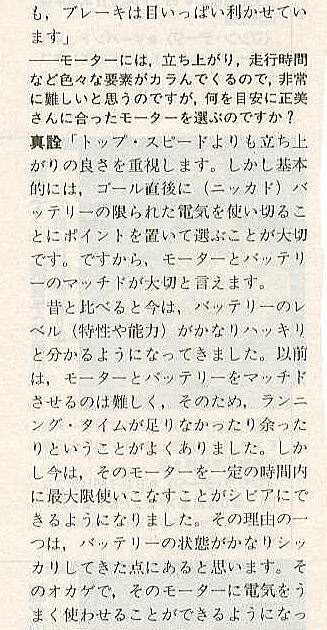 も，ブレーキは目いっぱい利かせてい
ます」
――モーターには，立ち上がり，走行時間
など色々な要素がカラんでくるので，非常
に難しいと思うのですが，何を目安に正美
さんに合ったモーターを選ぶのですか？
真詮「トップ・スピードよりも立ち上
がりの良さを重視します。しかし基本
的には，ゴール直後に（ニッカド）バ
ッテリーの限られた電気を使い切るこ
とにポイントを置いて選ぶことが大切
です。ですから，モーターとバッテリ
ーのマッチドが大切と言えます。
昔と比べると今は，バッテリーのレ
ベル（特性や能力）がかなりハッキリ
と分かるようになってきました。以前
は，モーターとバッテリーをマッチド
させるのは難しく，そのため，ランニ
ング・タイムが足りなかったり余った
りということがよくありました。しか
し今は，そのモーターを一定の時間内
に最大限使いこなすことがシビアにで
きるようになりました。その理由の一
つは，バッテリーの状態がかなりシッ
カリしてきた点にあると思います。そ
のオカゲで，そのモーターに電気をう
まく使わせることができるようになっ